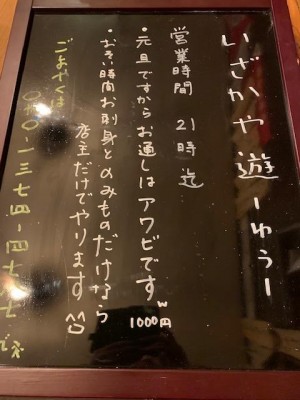 いざかや 遊 ーゆうー
営業時間 21時迄
・元旦ですからお通しはアワビですw 1000円
・おそい時間お刺身とのみものだけなら
店主だけでやります
ごよやくは